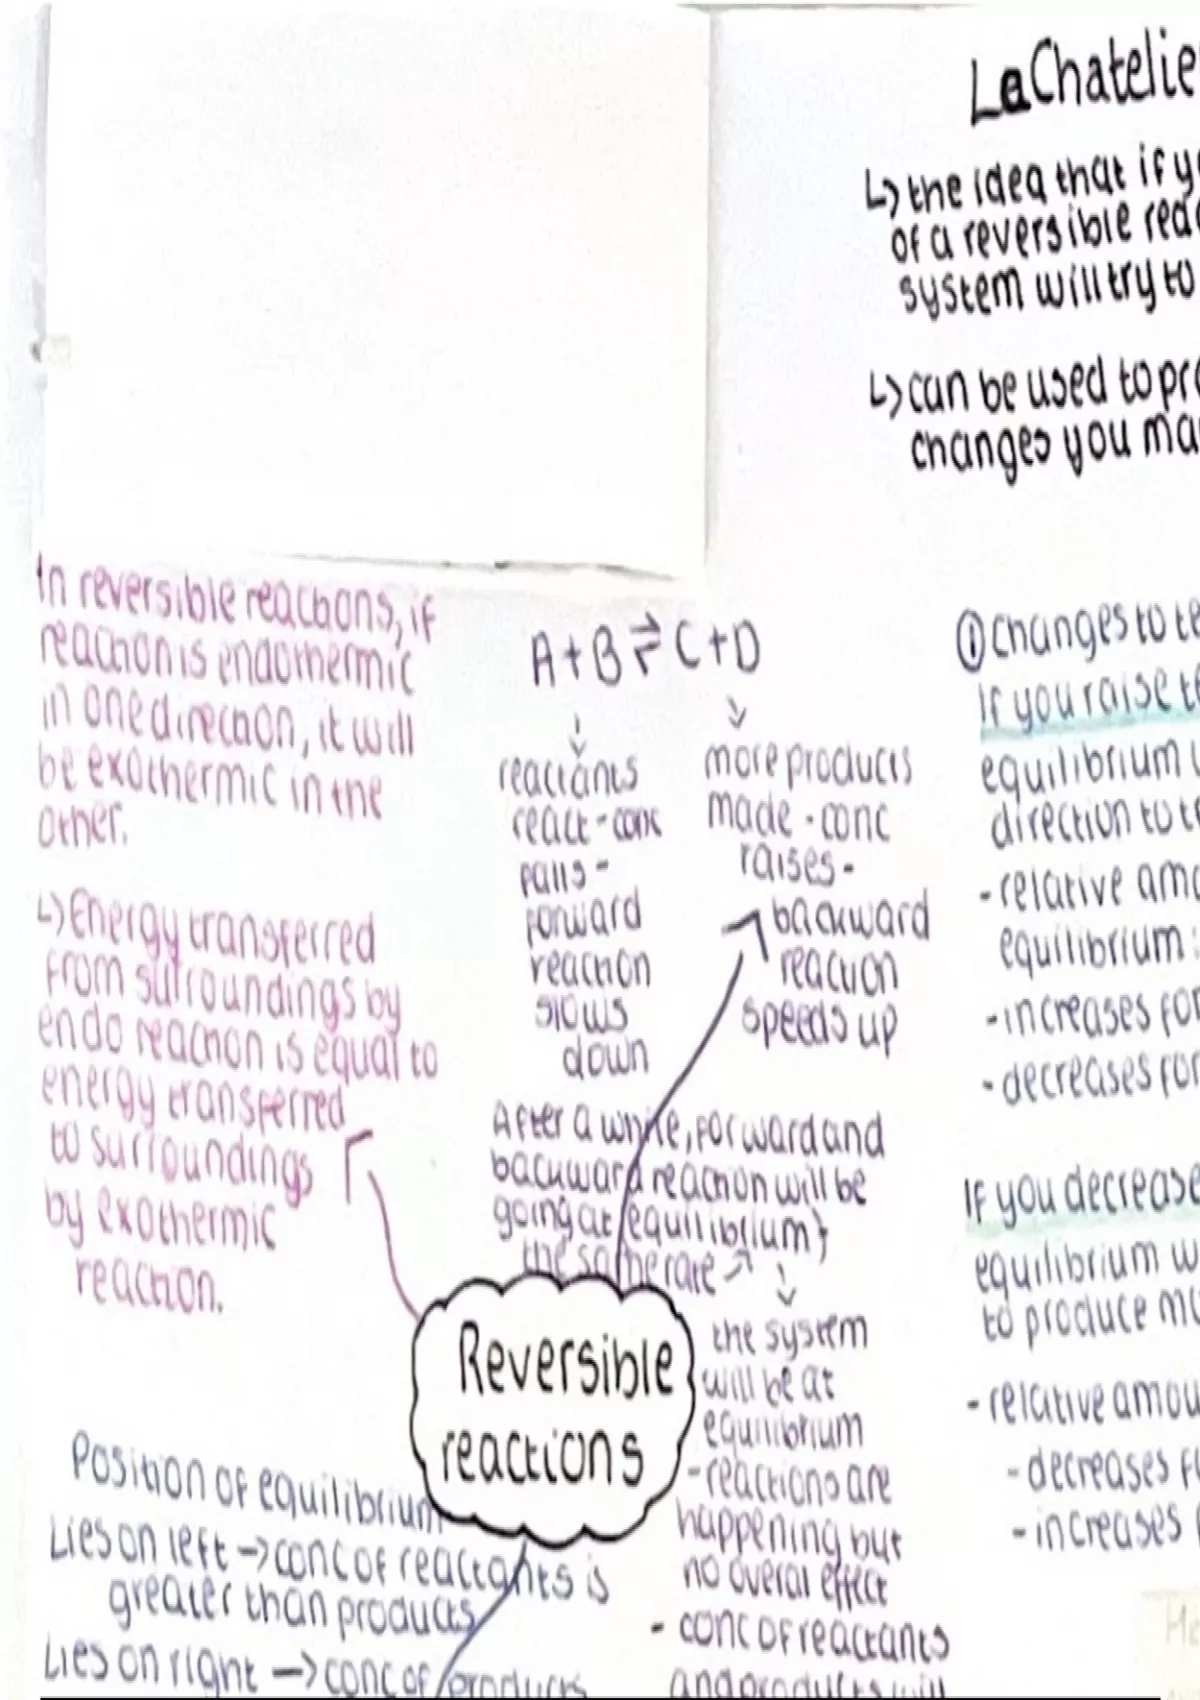 LeChatelie
↳ the idea that if y
of a reversible reac
system will try to
↳ can be used to pre
changes you ma
In reversible reactions, if
reaction is endothermic
in one direction, it will
be exothermic in the
other.
↳ Energy transferred
from surroundings by
endo reaction is equal to
energy transferred
to surroundings
by exothermic
reaction.
A + B ⇌ C + D
reactants
react - conc
falls -
forward
reaction
slows
down
more products
made - conc
raises -
backward
reaction
speeds up
After a while, forward and
backward reaction will be
going at equilibrium}
the same rate
the system
will be at
equilibrium
- reactions are
happening but
no overal effect
- conc of reactants
and products will
Reversible
reactions
Position of equilibrium
Lies on left → conc of reactants is
greater than products
Lies on right → conc of products
① Changes to te
If you raise te
equilibrium
direction to te
- relative amo
equilibrium:
- increases for
- decreases for
If you decrease
equilibrium w
to produce mo
- relative amou
- decreases f
- increases